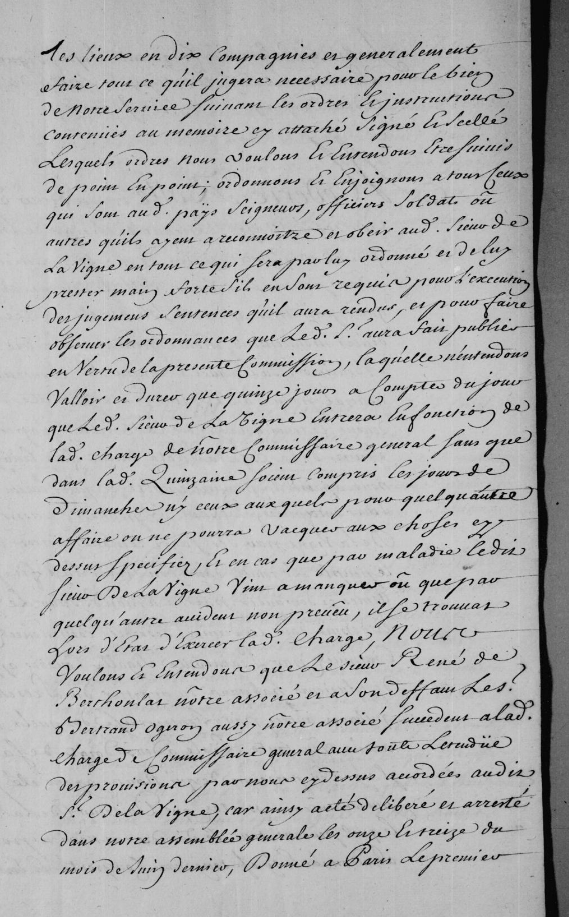 les lieux en dix Compagnies et generalement
faire tout ce qu'il jugera necessaire pour le bien
de Notre Service suivant les ordres Et instructions
contenües au memoire cy attaché Signé Et Scellé
Lesquels ordres nous Voulons Et Entendons Etre suivis
de point En point; ordonnons Et Enjoignons a tous Ceux
qui sont aud. païs Seigneurs, officiers Soldats oü
autres qu'ils ayent a reconnoitre et obeir aud. Sieur de
La Vigne en tout ce qui sera par luy ordonné et de luy
prester main forte s'ils en sont requis pour l'execution
des jugemens Sentences qu'il aura rendus, et pour faire
observer les ordonnances que Led. Sr. aura fait publier
en Vertu de la presente Commission, laquelle n'entendons
Valloir et durer que quinze jours a Compter du jour
que Led. Sieur de La Vigne Entrera En fonction de
lad. charge de nôtre Commissaire general sans que
dans lad. Quinzaine soient compris les jours de
Dimanches n'y ceux auxquels pour quelqu'autre
affaire on ne pourra Vacquer aux choses cy
dessus specifiez, Et en cas que par maladie ledit
Sieur De La Vigne Vint a manquer oü que par
quelqu'autre accident non preveu, il se trouvat
hors d'Etat d'Exercer lad. charge, Nous
Voulons Et Entendons que Le sieur René de
Berthoulat nôtre associé et a Son deffaut Le S.
Bertrand ogeron aussy nôtre associé succedent a lad.
charge de Commissaire general avec toute L'etendüe
des provisions par nous cy dessus accordées audit
Sr. De la Vigne, car ainsy a eté deliberé et arresté
dans notre assemblée generale les onze Et treize du
mois de Juin dernier, Donné a Paris Le premier